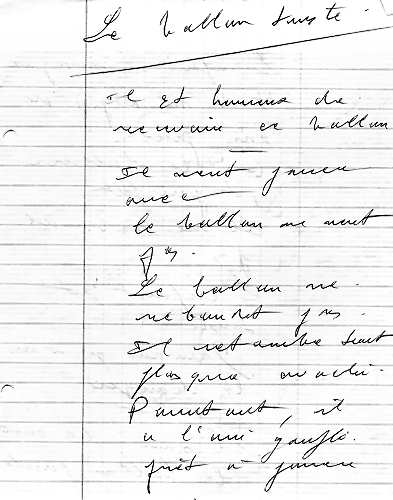 Le ballon triste.
Il est heureux de
recevoir ce ballon
Il veut jouer
avec
le ballon ne veut
pas.
Le ballon ne
rebondit pas.
Il retombe tout
flasque
Pourtant, il
a l'air gonflé.
prêt à jouer